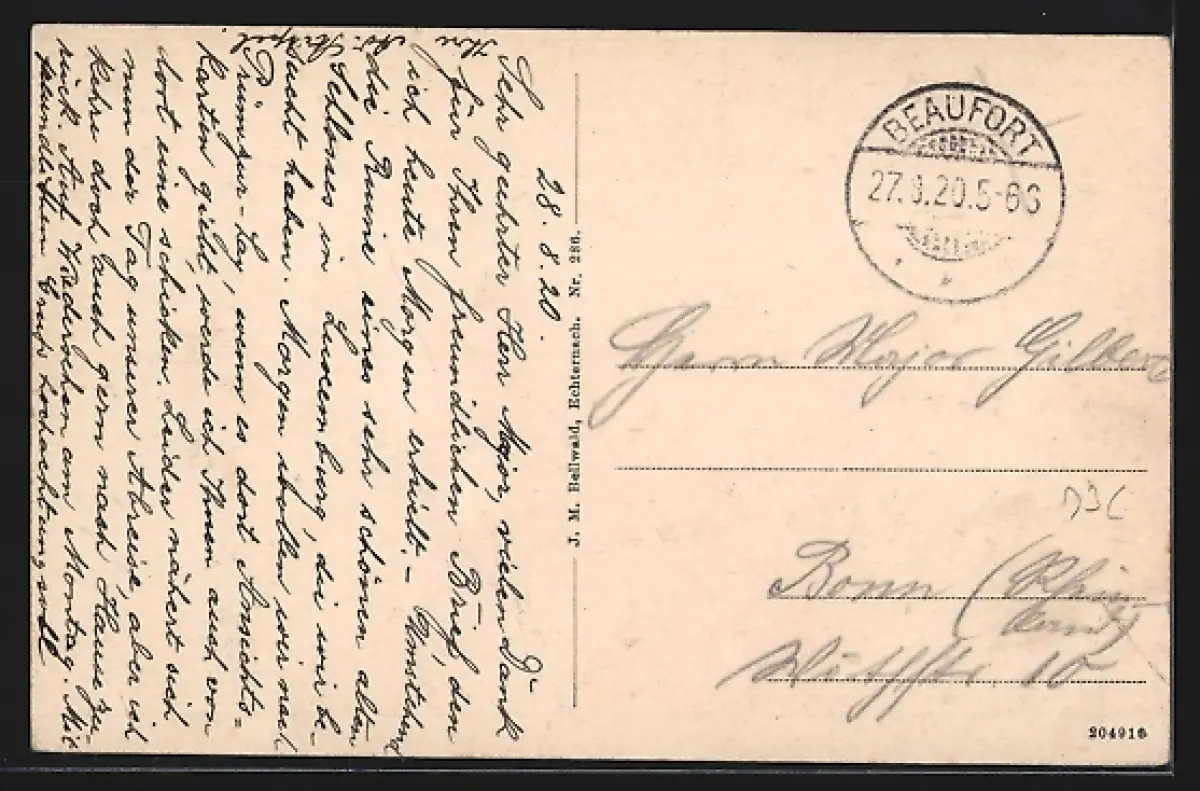 28.8.20.
Sehr geehrter Herr Major, vielen Dank
für Ihren freundlichen Brief, den
ich heute Morgen erhielt. – Umstehend
die Ruine eines sehr schönen alten
Schlosses in Luxemburg, die wir be-
sucht haben. Morgen wollen wir nach
Prümzur-Lay, wenn es dort Ansichts-
karten giebt, werde ich Ihnen auch von
dort eine schicken. Leider nähert sich
nun der Tag unserer Abreise, aber ich
kehre doch auch gern nach Hause zu-
rück. Auf Wiedersehen am Montag. Mit
freundlichem Gruß hochachtungsvoll
Ihre
J. M. Bellwald, Echternach. Nr. 286.
BEAUFORT
27.8.20.5-6S
Herrn Major Gilbert
Bonn (Rhein-
land)
204916